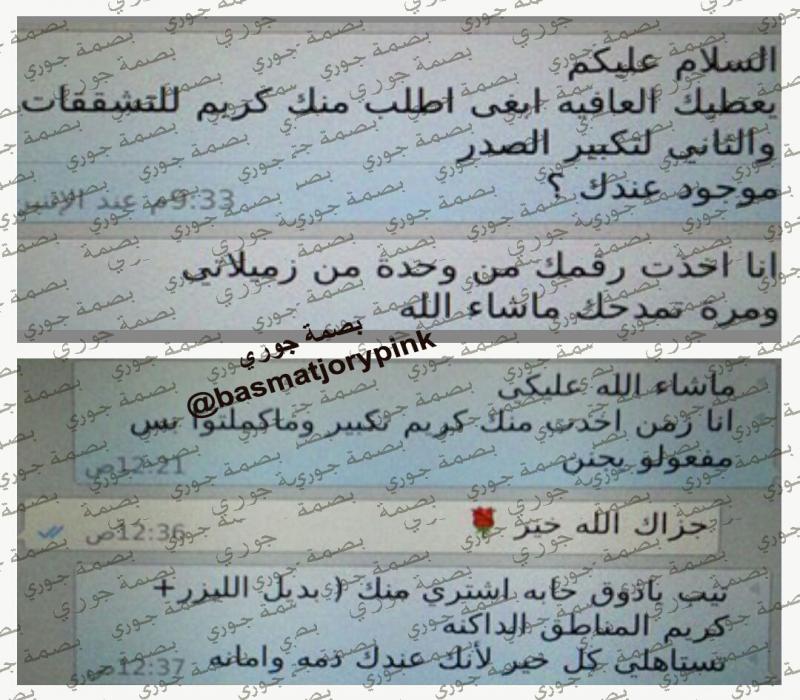 السلام عليكم
يعطيك العافيه ابغى اطلب منك كريم للتشققات
والثاني لتكبير الصدر
موجود عندك ؟
9:33م عند الإثنين
انا اخذت رقمك من وحدة من زميلاتي
ومرة تمدحك ماشاء الله
بصمة جوري
@basmatjorypink
ماشاء الله عليكى
انا زمن اخذت منك كريم تكبير وماكملتوا بس
مفعولو يجنن
12:21ص
جزاك الله خير 🌹
12:36ص
تيت ياذوق حابه اشتري منك ( بديل الليزر+
كريم المناطق الداكنه
تستاهلي كل خير لأنك عندك ذمه وامانه
12:37ص